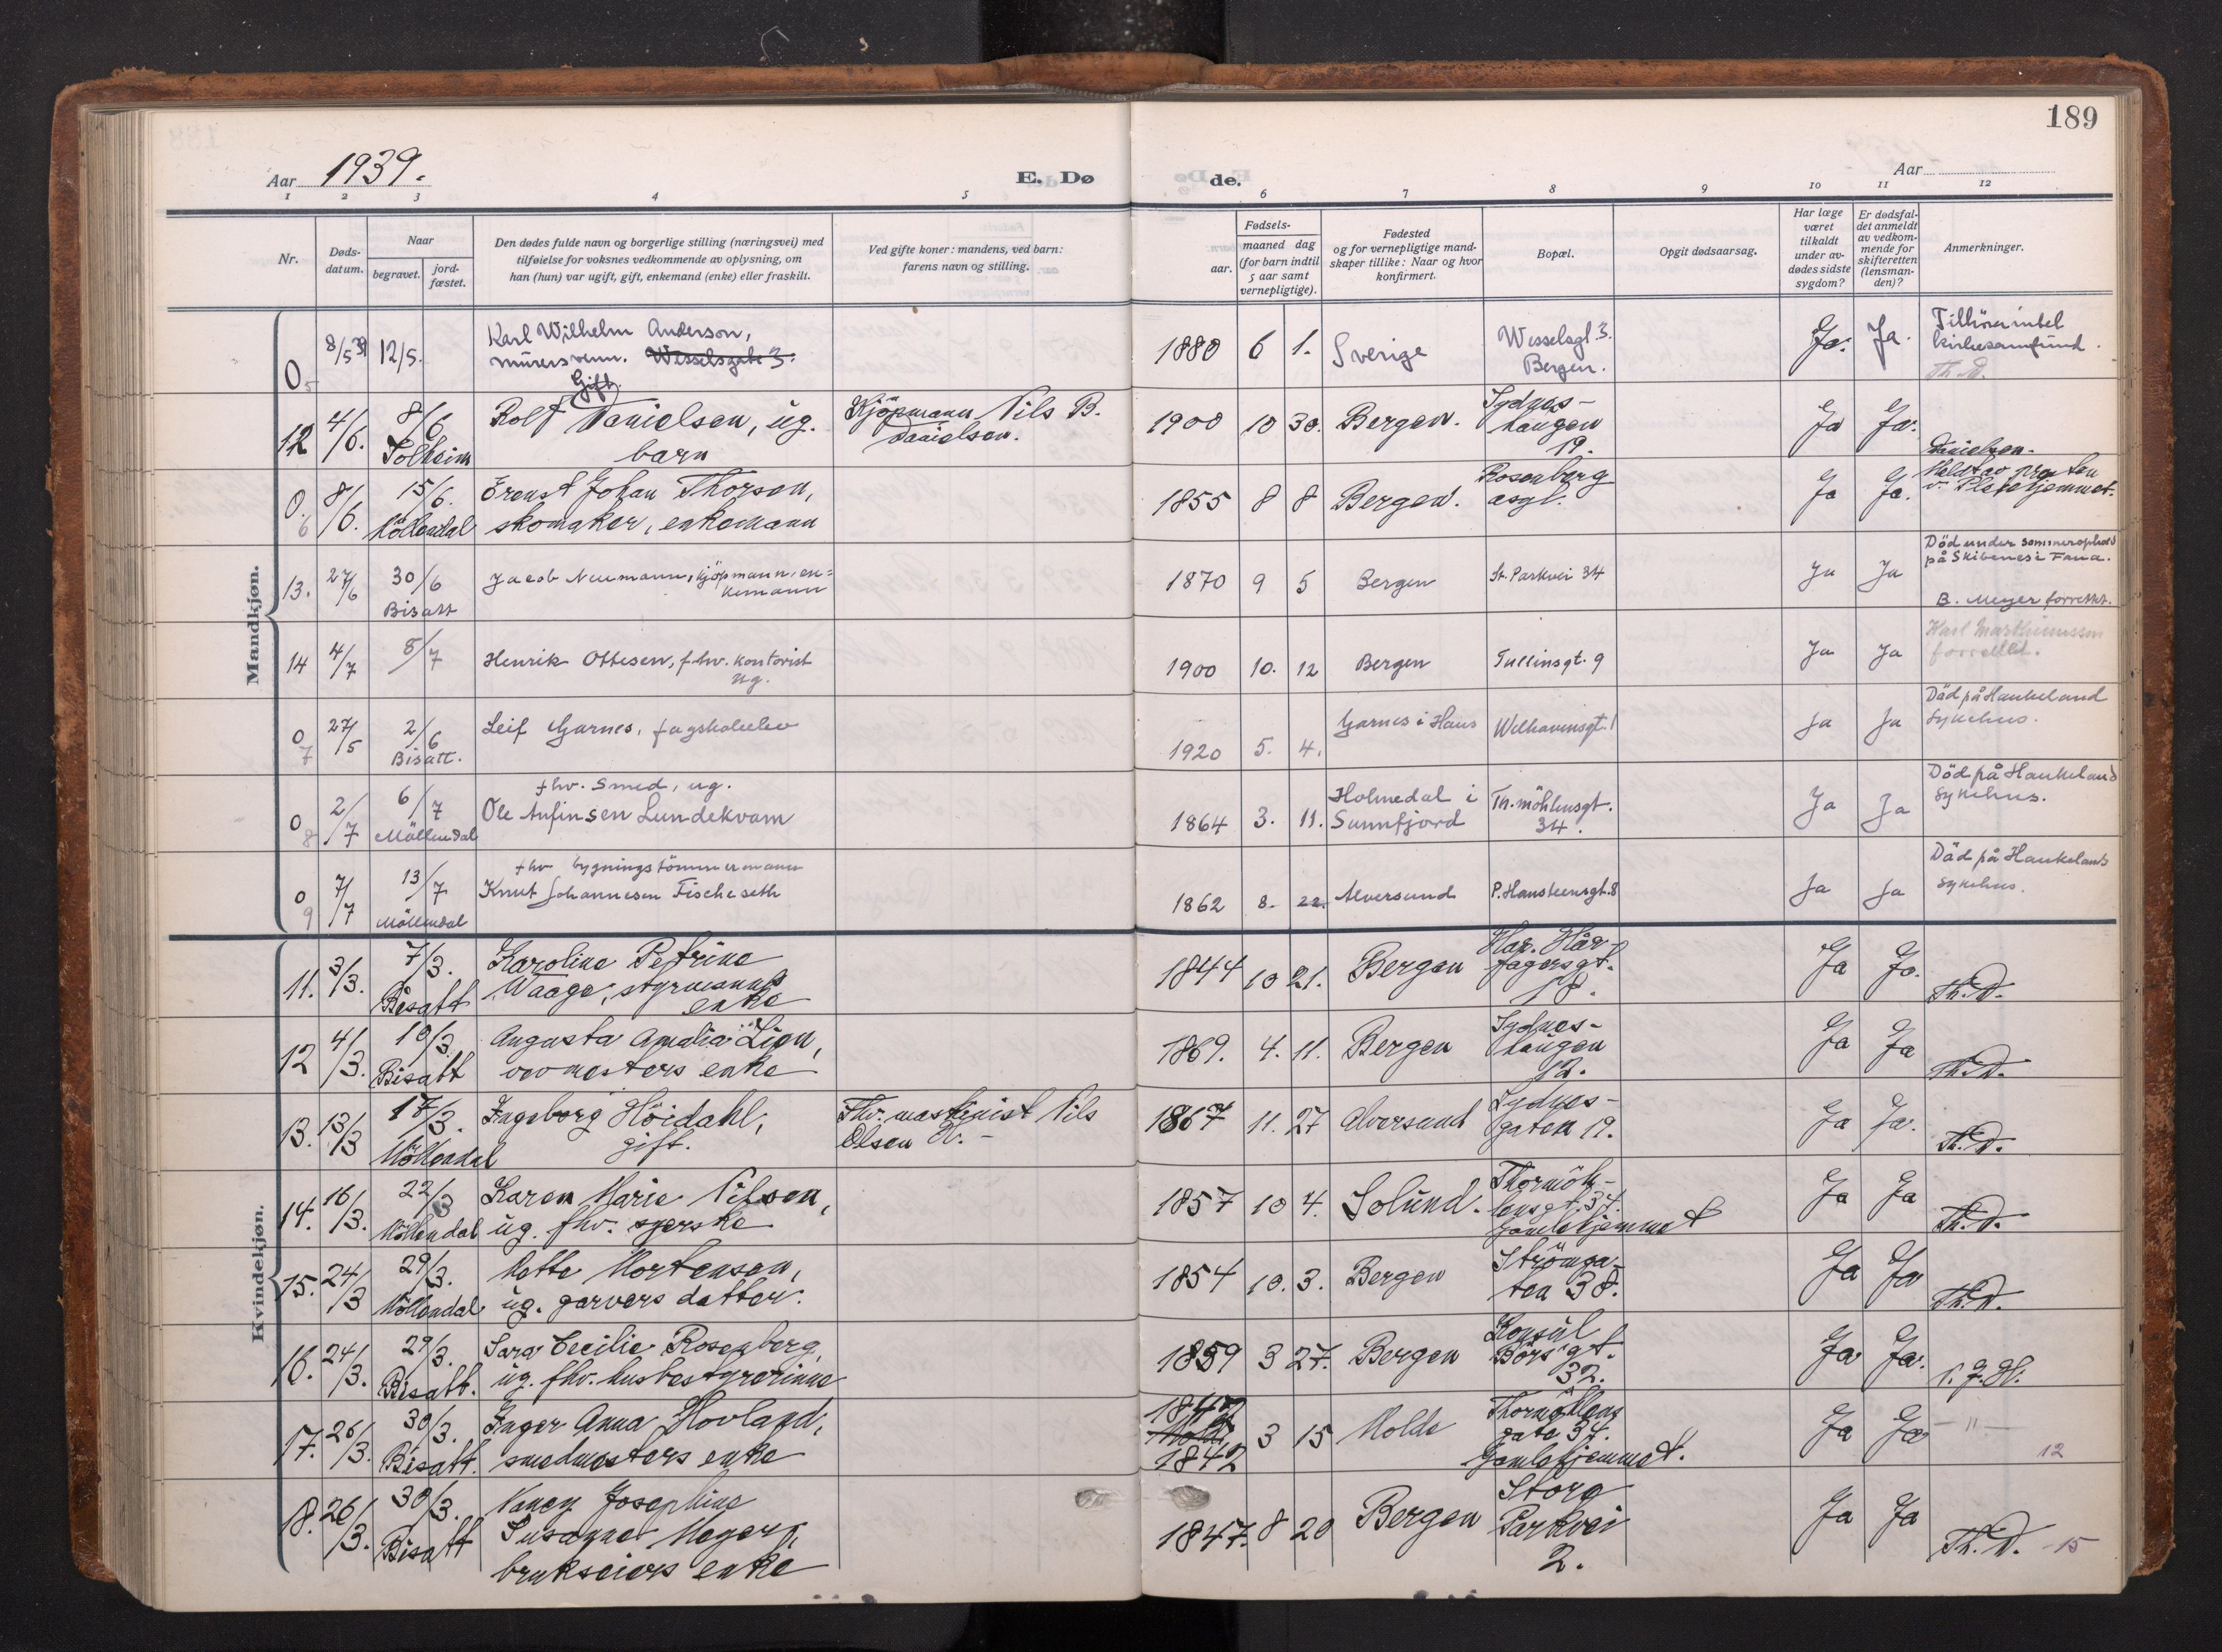 189
Aar 1939.
E. Dø
de.
Aar
1 2 3 4 5 6 7 8 9 10 11 12
Nr.
Døds-
datum.
Naar
begravet.
jord-
fæstet.
Den dødes fulde navn og borgerlige stilling (næringsvei) med
tilføielse for voksnes vedkommende av oplysning, om
han (hun) var ugift, gift, enkemand (enke) eller fraskilt.
Ved gifte koner: mandens, ved barn:
farens navn og stilling.
Fødsels-
aar.
maaned dag
(for barn indtil
5 aar samt
vernepligtige).
Fødested
og for vernepligtige mand-
skaper tillike: Naar og hvor
konfirmert.
Bopæl.
Opgit dødsaarsag.
Har læge
været
tilkaldt
under av-
dødes sidste
sygdom?
Er dødsfal-
det anmeldt
av vedkom-
mende for
skifteretten
(lensman-
den)?
Anmerkninger.
Mandkjøn.
0 5 8/5 39 12/5. Karl Wilhelm Anderson,
murersvenn. Wesselsgate 3.
Gift.
1880 6 1. Sverige Wesselsgt. 3.
Bergen.
Ja. Ja.
kirkesamfund.
Th. D.
12 4/6. 8/6 Solheim
Rolf Danielsen, ug.
barn
Kjöpmann Nils B.
Danielsen.
1900 10 30. Bergen. Sydnes-
haugen
19.
Ja Ja.
Danielsen.
0 6 8/6. 15/6. Möllendal
Ernst Johan Thorsen,
skomaker, enkemann
1855 8 8 Bergen. Rosenberg
sgt.
Ja Ja.
v. Pleiehjemmet.
13. 27/6 30/6 Bisatt
Jacob Neumann, kjöpmann, en=
kemann
1870 9 5 Bergen St. Parkvei 34 Ja Ja
Död under sommerophold
på Skibenes i Fana.
B. Meyer forrettet.
14 4/7 8/7 Henrik Ottesen, fhv. kontorist
ug.
1900 10. 12 Bergen Tullinsgt. 9 Ja Ja
Karl Marthinussen
forrettet.
0 7 27/5 2/6 Bisatt.
Leif Garnes, fagskoleelev
1920 5. 4. Garnes i Haus Welhavensgt. 1 Ja Ja
Död på Haukeland
Sykehus.
0 8 2/7 6/7 Möllendal
fhv. Smed, ug.
Ole Anfinsen Lundekvam
1864 3. 11. Holmedal i
Sunnfjord
Th. möhlensgt.
34.
Ja Ja
Död på Haukeland
Sykehus.
0 9 7/7 13/7 Möllendal
fhv bygningstömmermann
Knut Johannesen Fischeseth
1862 8. 22. Alversund P. Hansteensgt. 8 Ja Ja
Död på Haukeland
Sykehus.
Kvindekjøn.
11. 3/3. 7/3. Bisatt
Karoline Petrine
Waage, styrmanns
enke
1844 10 21. Bergen Har. Hår-
fagersgt.
18.
Ja Ja. Th. D.
12 4/3. 10/3. Bisatt
Augusta Amalia Lign,
vevmesters enke
1869. 4. 11. Bergen Sydnes-
haugen
12.
Ja Ja Th. D.
13. 13/3 17/3. Möllendal
Ingeborg Höidahl,
gift.
Fhv. maskinist Nils
Olsen H.
1867 11. 27 Alversund Sydnes-
gaten 19.
Ja Ja. Th. D.
14. 16/3. 22/3 Möllendal
Karen Marie Nilsen,
ug. fhv. syerske
1857 10 4. Solund. Thormöh-
lensgt. 34.
Gamlehjemmet
Ja Ja Th. D.
15. 24/3 29/3. Möllendal
Mette Mortensen,
ug. garvers datter.
1854 10. 3. Bergen Strömga-
ten 38.
Ja Ja Th. D.
16. 24/3. 29/3. Bisatt.
Sara Cecilie Rosenberg,
ug. fhv. husbestyrerinne
1859 3 27. Bergen Konsul
Börs gt.
32.
Ja Ja.
17. 26/3. 30/3. Bisatt.
Inger Anna Hovland,
smedmesters enke
1842 3 15 Molde Thormöhlens
gate 34.
Gamlehjemmet.
Ja Ja — " —
12
18. 26/3. 30/3. Bisatt
Nancy Josephine
Susanne Meyer,
brukseiers enke
1847. 8 20 Bergen Store
Parkvei
2.
Ja Ja Th. D. -15